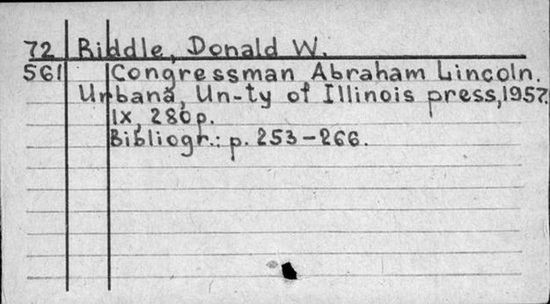 72 Riddle, Donald W.
561 Congressman Abraham Lincoln.
Urbana, Un-ty of Illinois press, 1957.
IX, 280p.
Bibliogr.: p. 253-266.